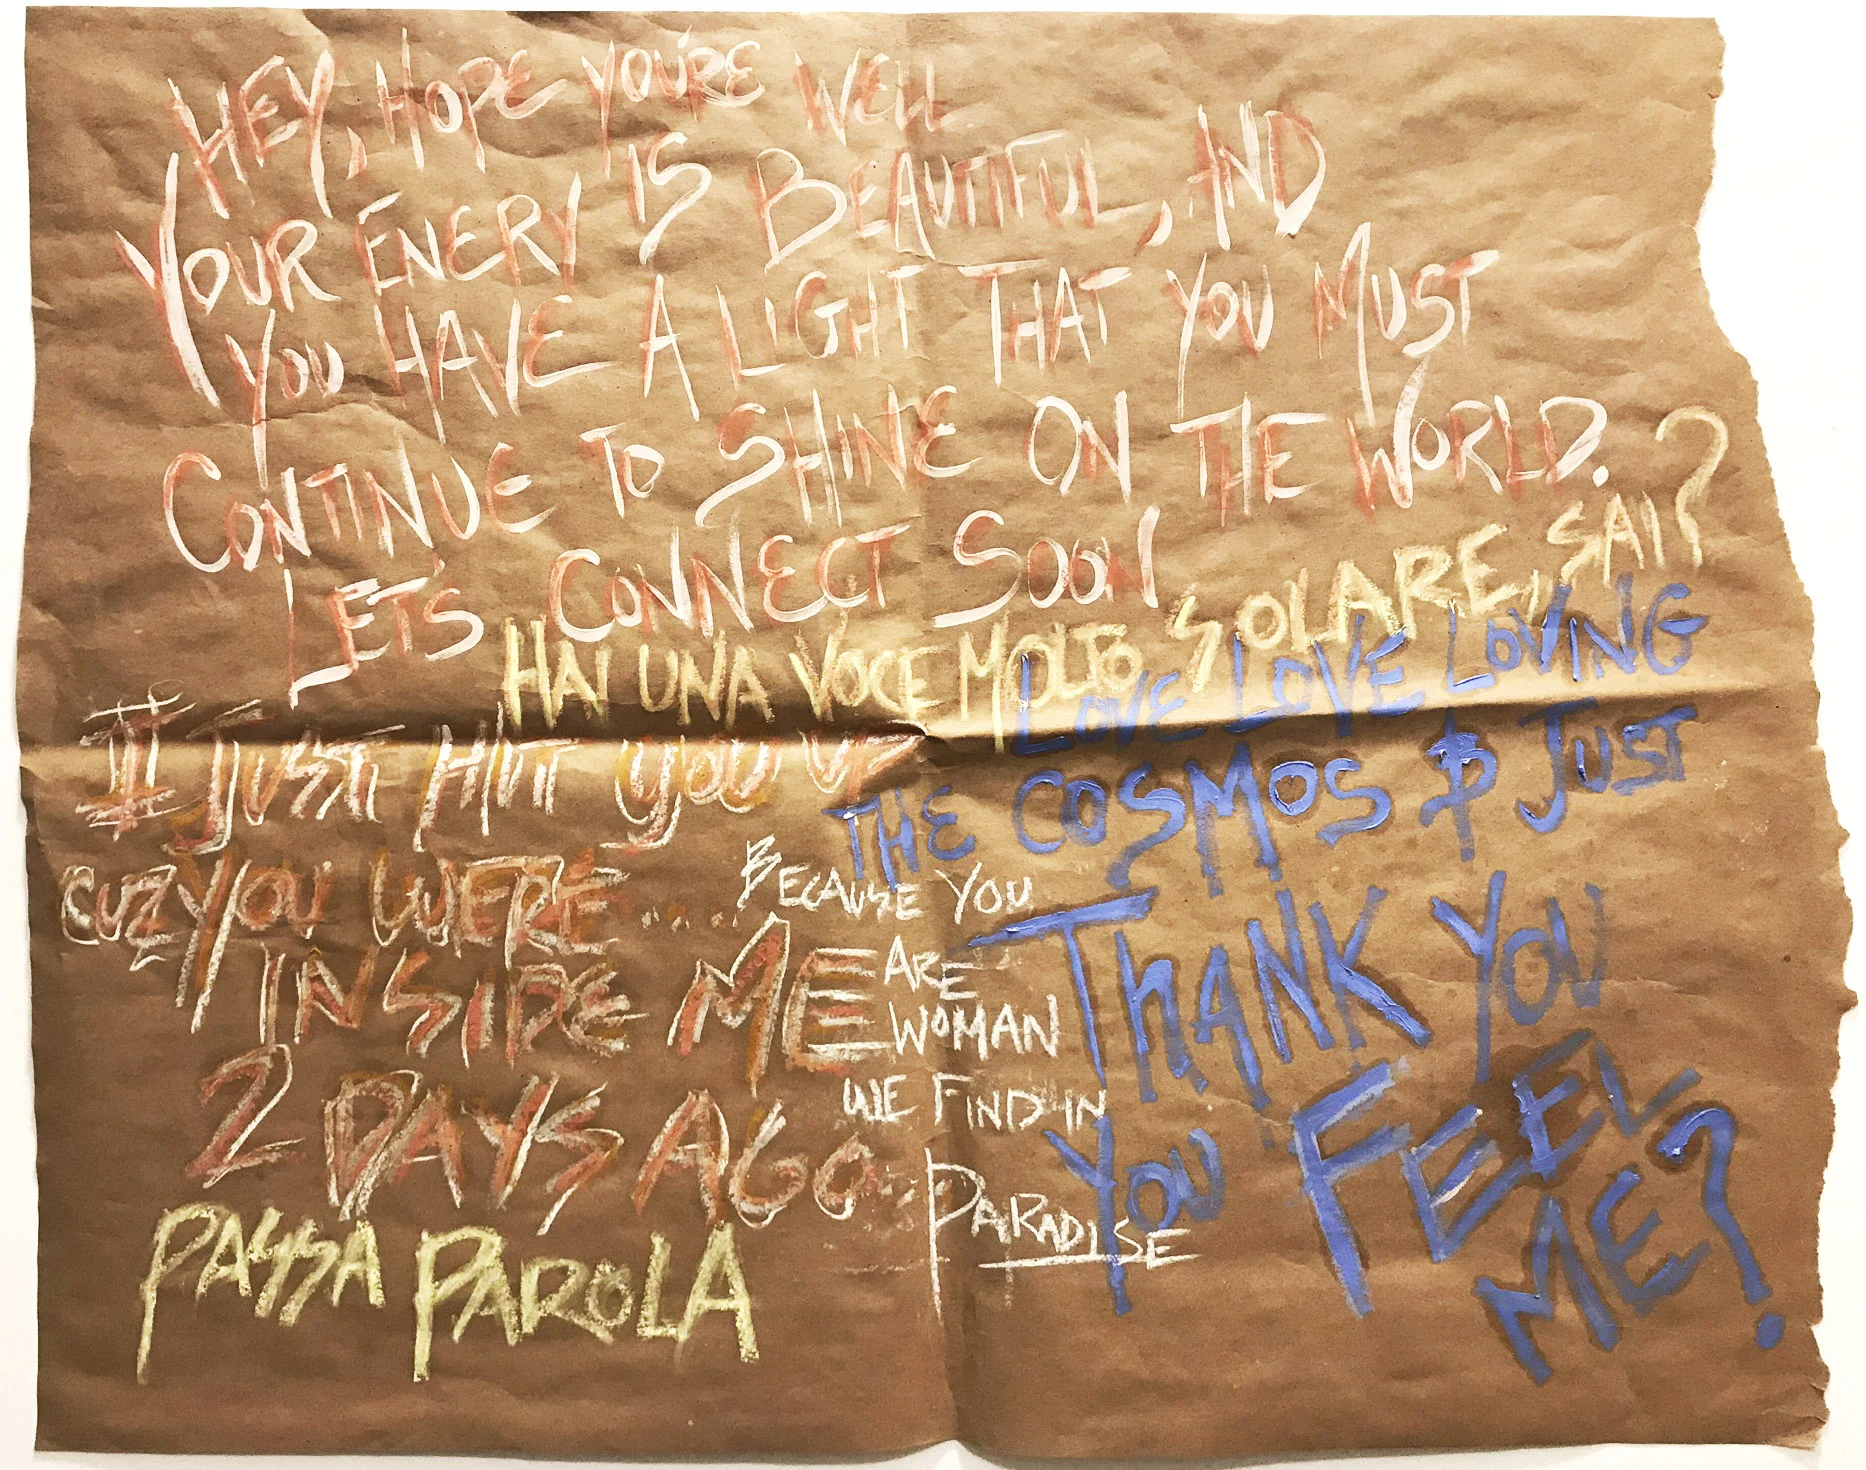 HEY, HOPE YOU'RE WELL
YOUR ENERY IS BEAUTIFUL, AND
YOU HAVE A LIGHT THAT YOU MUST
CONTINUE TO SHINE ON THE WORLD.
LET'S CONNECT SOON
HAI UNA VOCE MOLTO SOLARE, SAI?
I JUST HIT YOU UP
CUZ YOU WERE.....
INSIDE ME
2 DAYS AGO
PASSA PAROLA
BECAUSE YOU
ARE
WOMAN
WE FIND IN
PARADISE
LOVE LOVE LOVING
THE COSMOS & JUST
THANK YOU
YOU FEEL
ME?